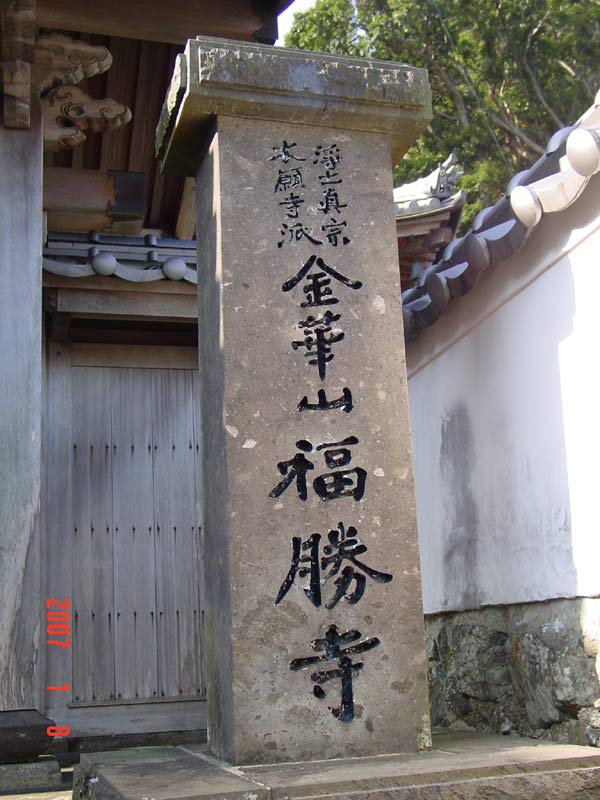 浄土真宗
本願寺派
金華山福勝寺
2007 1 8